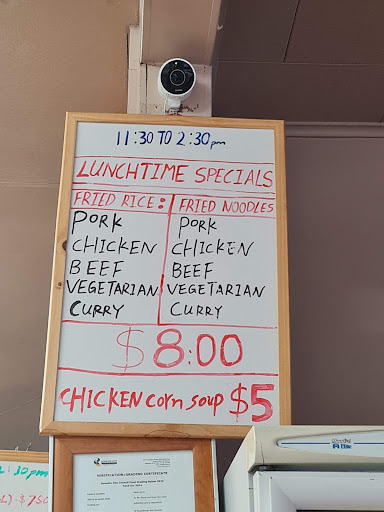 11:30 TO 2:30 pm
LUNCHTIME SPECIALS
FRIED RICE: FRIED NOODLES
PORK PORK
CHICKEN CHICKEN
BEEF BEEF
VEGETARIAN VEGETARIAN
CURRY CURRY
$8:00
CHICKEN corn soup $5
:30pm
VERIFICATION/GRADING CERTIFICATE